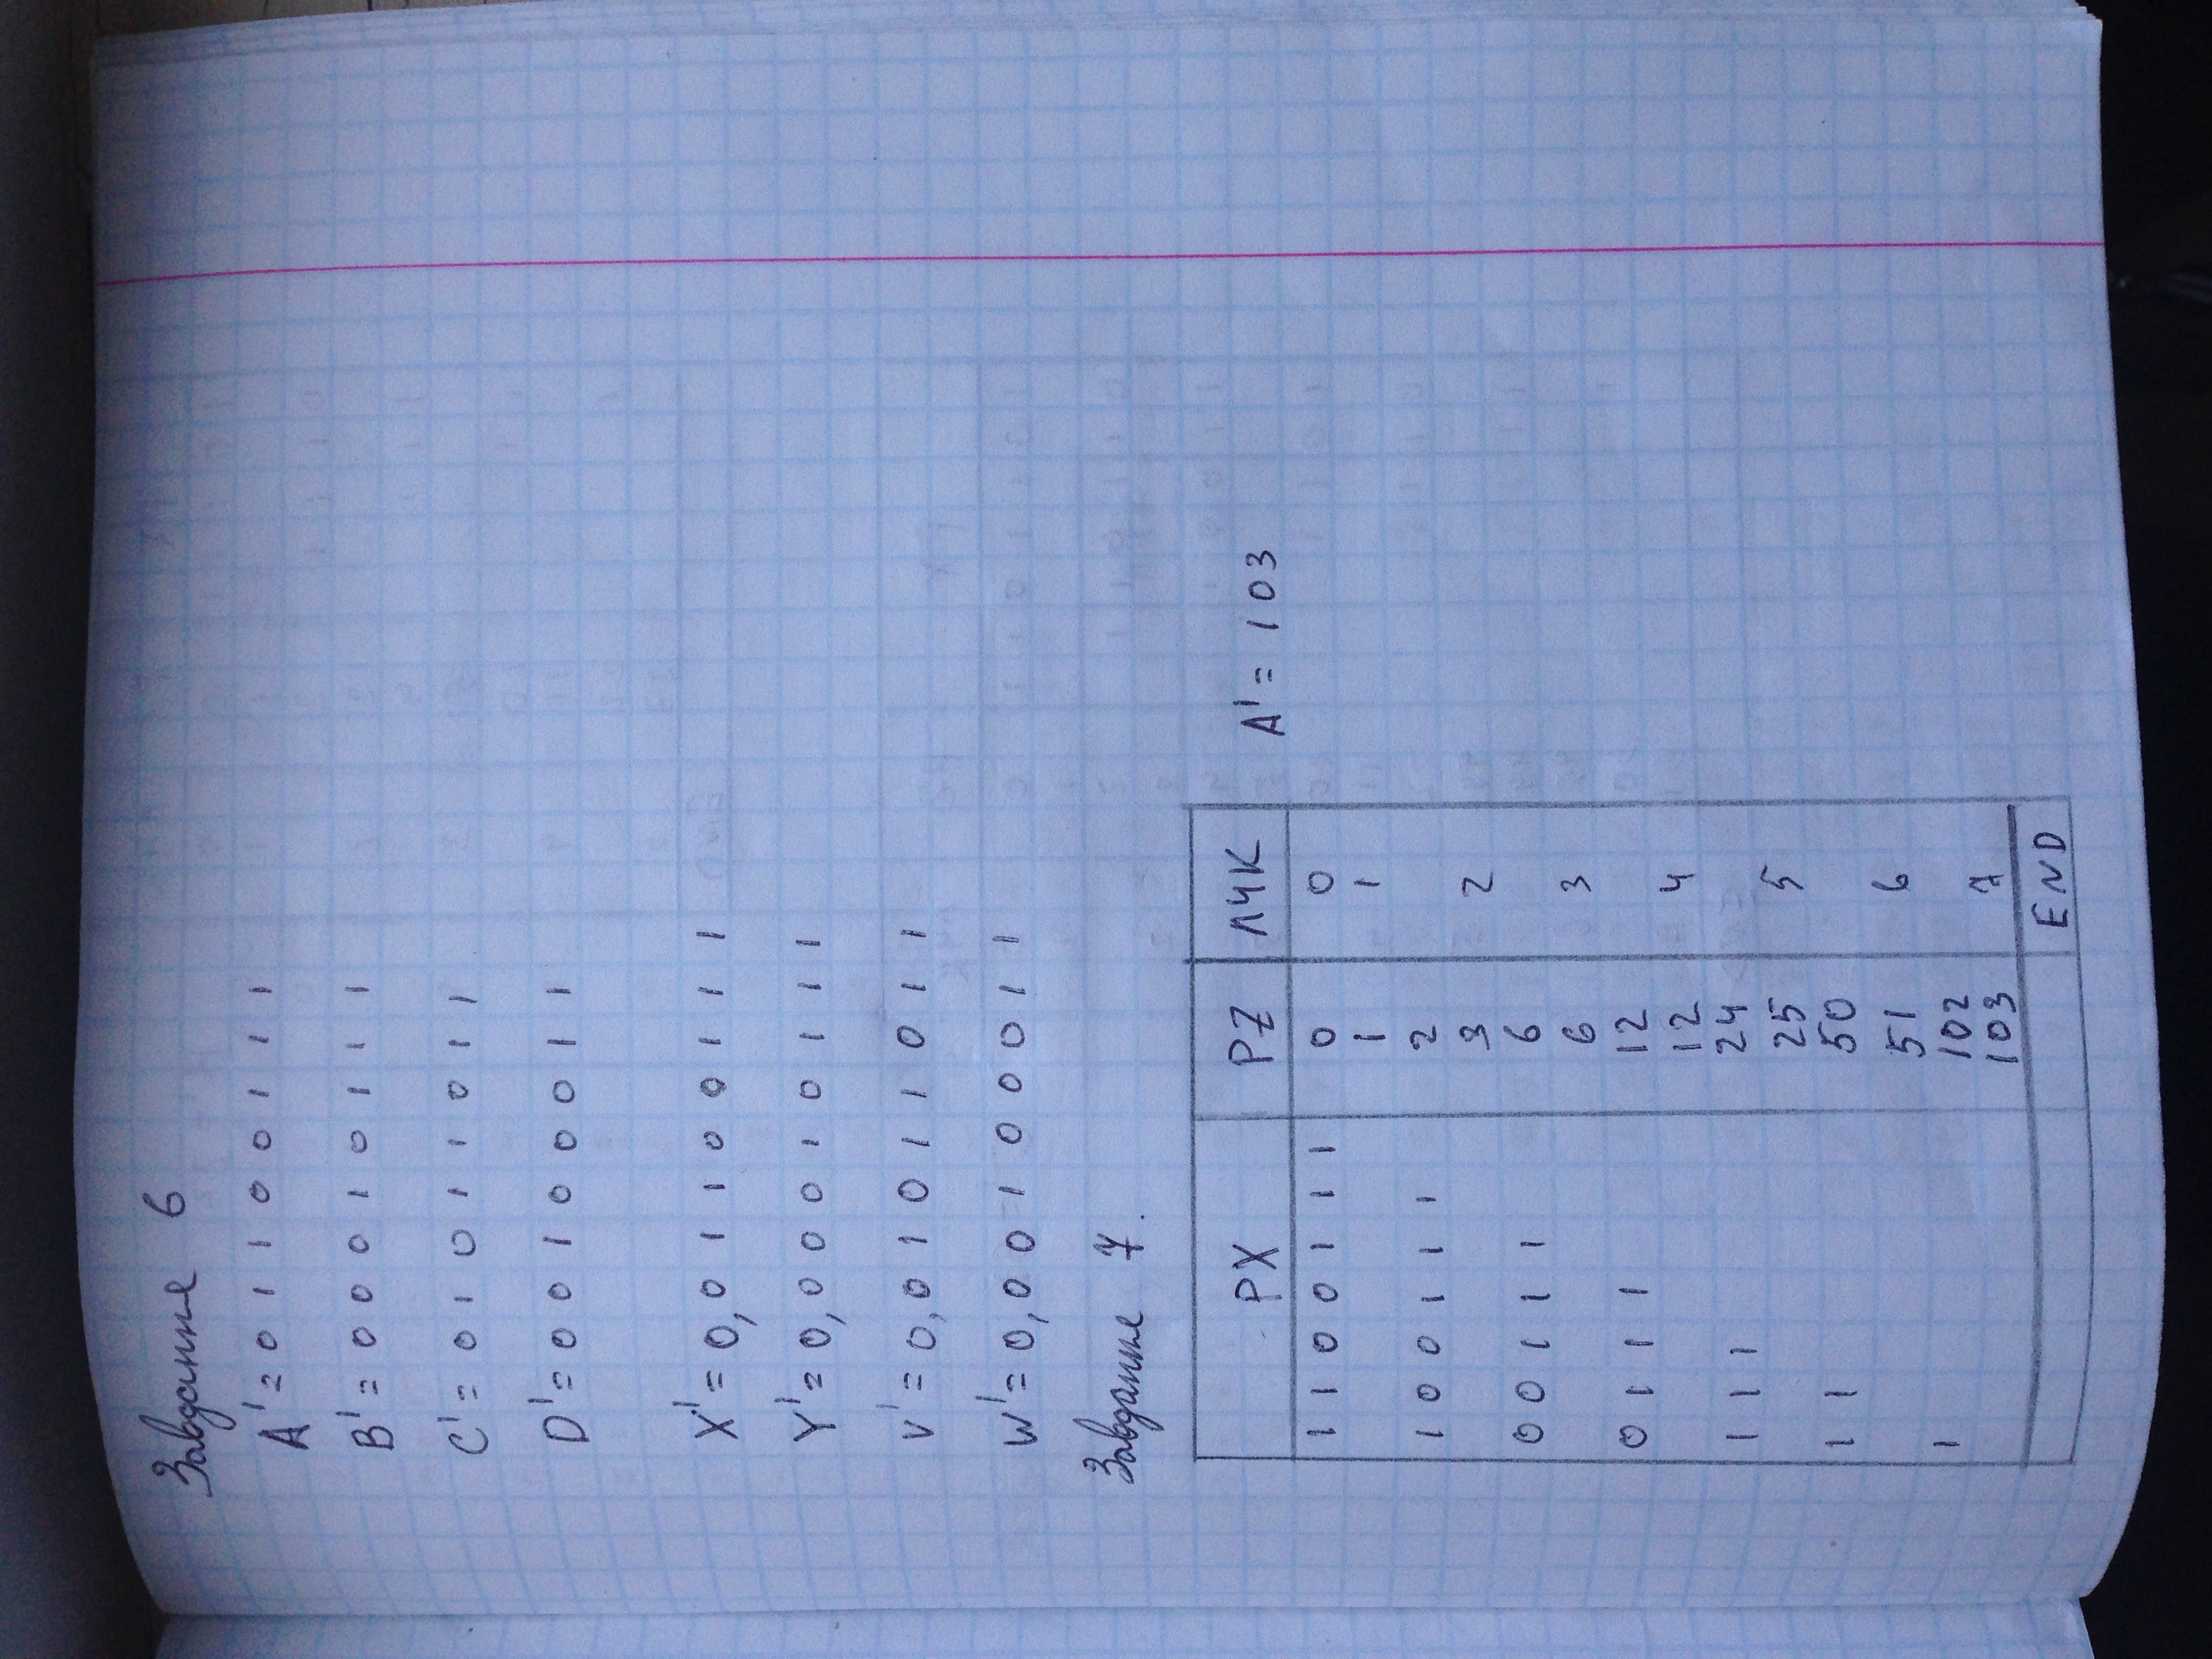 Завдання 6
A' = 0 1 1 0 0 1 1 1
B' = 0 0 0 1 0 1 1 1
C' = 0 1 0 1 1 0 1 1
D' = 0 0 1 0 0 0 1 1
X' = 0,0 1 1 0 0 1 1 1
Y' = 0,0 0 0 1 0 1 1 1
V' = 0,0 1 0 1 1 0 1 1
W' = 0,0 0 1 0 0 0 1 1
Завдання 7.
PX PZ ЛЧК A' = 103
1 1 0 0 1 1 1 0 0
1 1
1 0 0 1 1 1 2
3 2
0 0 1 1 1 6
6 3
0 1 1 1 12
12 4
1 1 1 24
25 5
1 1 50
51 6
1 102
103 7
END